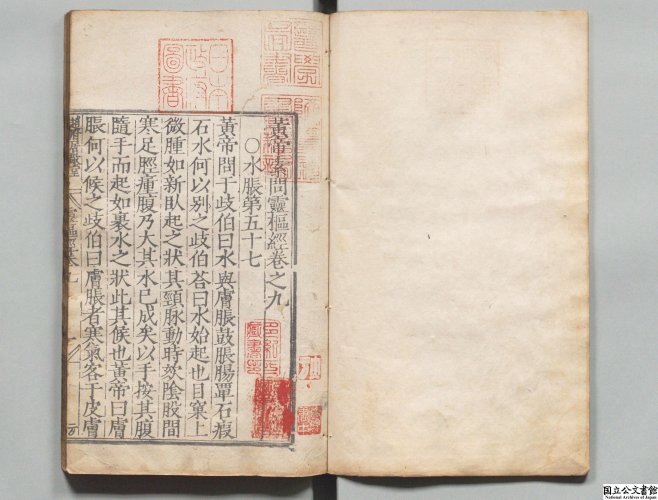 黃帝素問靈樞經卷之九
○水脹第五十七
黃帝問于歧伯曰水與膚脹鼓脹腸覃石瘕
石水何以别之歧伯荅曰水始起也目窠上
微腫如新臥起之狀其頸脉動時欬陰股間
寒足脛瘇腹乃大其水已成矣以手按其腹
隨手而起如裹水之狀此其候也黃帝曰膚
脹何以候之歧伯曰膚脹者寒氣客于皮膚
日本
政府
圖書
国立公文書館
National Archives of Japan